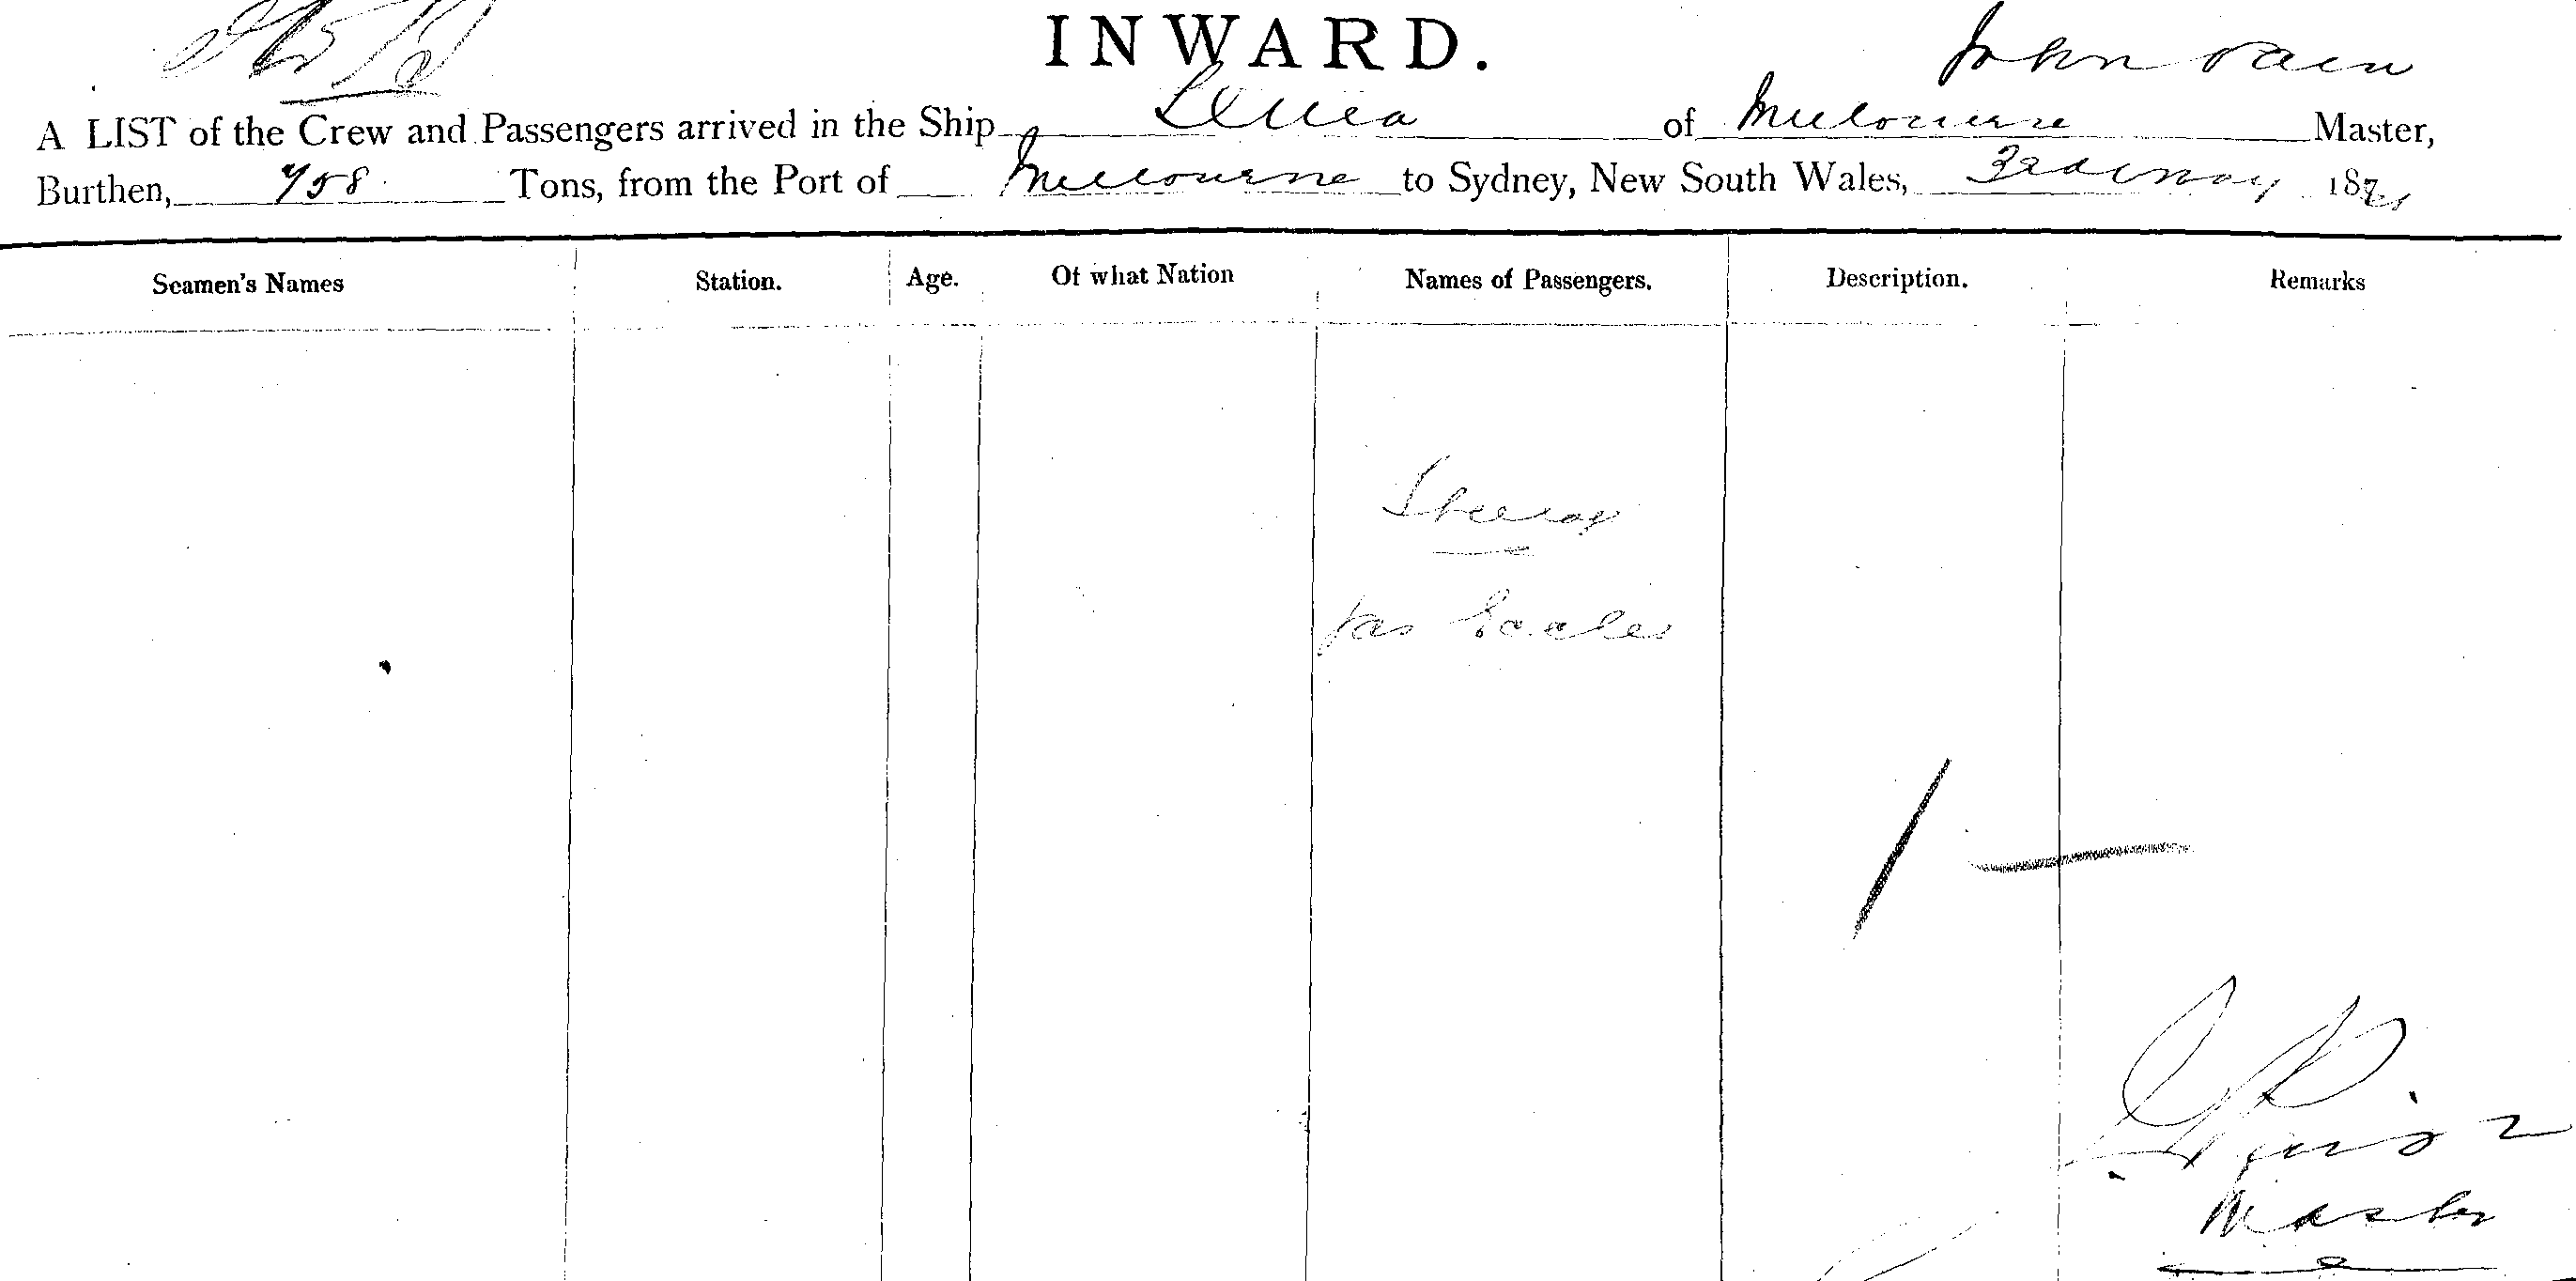 INWARD.
John
A LIST of the Crew and Passengers arrived in the Ship of Melbourne Master,
Burthen, 758 Tons, from the Port of Melbourne to Sydney, New South Wales, 187
Seamen's Names Station. Age. Of what Nation Names of Passengers. Description. Remarks
Jas Eccles
1
Master